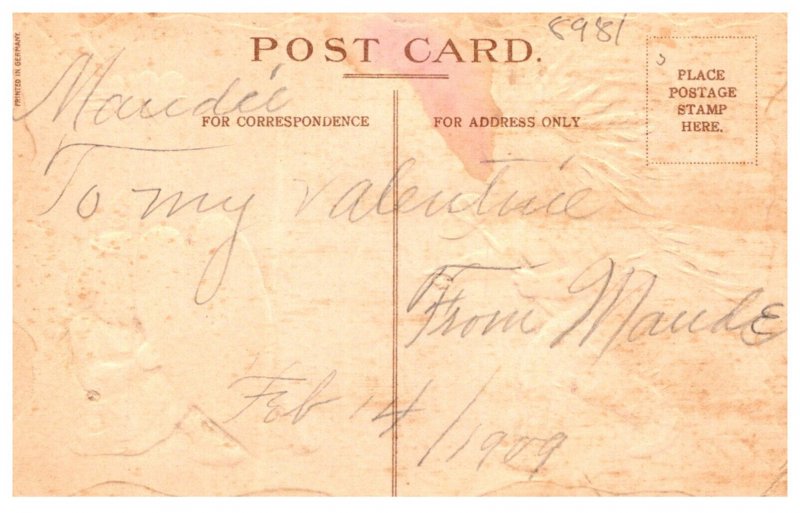 POST CARD.
8981
PRINTED IN GERMANY.
PLACE
POSTAGE
STAMP
HERE.
FOR CORRESPONDENCE
FOR ADDRESS ONLY
Maudie
To my valentine
From Maude
Feb 14/1909